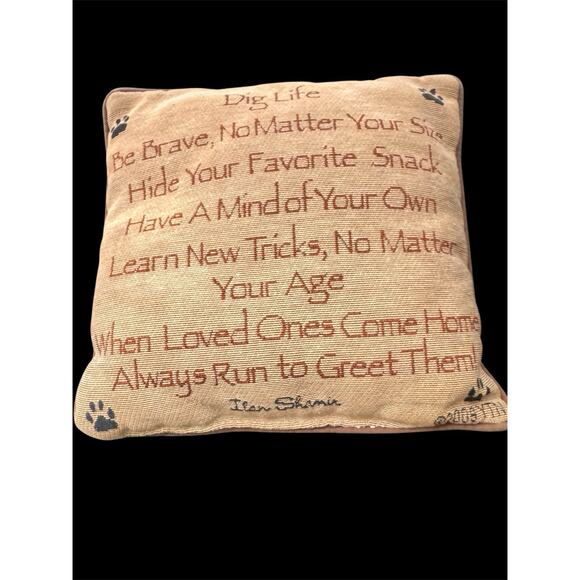 Dig Life
Be Brave, No Matter Your Size
Hide Your Favorite Snack
Have A Mind of Your Own
Learn New Tricks, No Matter
Your Age
When Loved Ones Come Home
Always Run to Greet Them!
Ilan Shamir